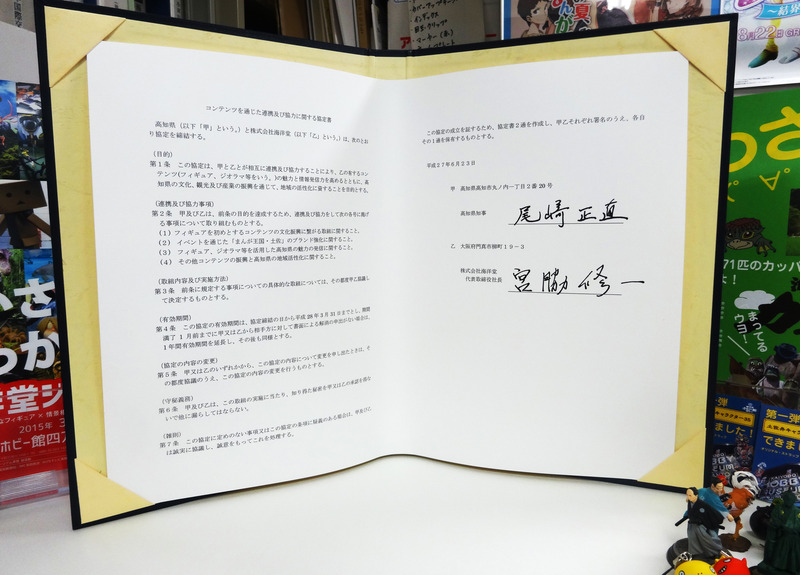 コンテンツを通じた連携及び協力に関する協定書
高知県(以下「甲」という。)と株式会社海洋堂(以下「乙」という。)は、次のとお
り協定を締結する。
(目的)
第1条 この協定は、甲と乙とが相互に連携及び協力することにより、乙の有するコン
テンツ(フィギュア、ジオラマ等をいう。)の魅力と情報発信力を高めるとともに、高
知県の文化、観光及び産業の振興を通じて、地域の活性化に資することを目的とする。
(連携及び協力事項)
第2条 甲及び乙は、前条の目的を達成するため、連携及び協力をして次の各号に掲げ
る事項について取り組むものとする。
(1)フィギュアを初めとするコンテンツの文化振興に繋がる取組に関すること。
(2)イベントを通じた「まんが王国・土佐」のブランド強化に関すること。
(3)フィギュア、ジオラマ等を活用した高知県の魅力の発信に関すること。
(4)その他コンテンツの振興と高知県の地域活性化に関すること。
(取組内容及び実施方法)
第3条 前条に規定する事項についての具体的な取組については、その都度甲乙協議し
て決定するものとする。
(有効期間)
第4条 この協定の有効期間は、協定締結の日から平成28年3月31日までとし、期間
満了1月前までに甲又は乙から相手方に対して書面による解消の申出がない場合は、
1年間有効期間を延長し、その後も同様とする。
(協定の内容の変更)
第5条 甲又は乙のいずれかから、この協定の内容について変更を申し出たときは、そ
の都度協議のうえ、この協定の内容の変更を行うものとする。
(守秘義務)
第6条 甲及び乙は、この取組の実施に当たり、知り得た秘密を甲又は乙の承諾を得な
いで他に漏らしてはならない。
(雑則)
第7条 この協定に定めのない事項又はこの協定の条項に疑義のある場合は、甲及び乙
は誠実に協議し、誠意をもってこれを処理する。
この協定の成立を証するため、協定書2通を作成し、甲乙それぞれ署名のうえ、各自
その1通を保有するものとする。
平成27年6月23日
甲 高知県高知市丸ノ内一丁目2番20号
高知県知事 尾﨑正直
乙 大阪府門真市柳町19-3
株式会社海洋堂
代表取締役社長 宮脇修一
2015年
ホビー館四
71匹のカッパ
まってる
ウヨ!
第一弾
できま